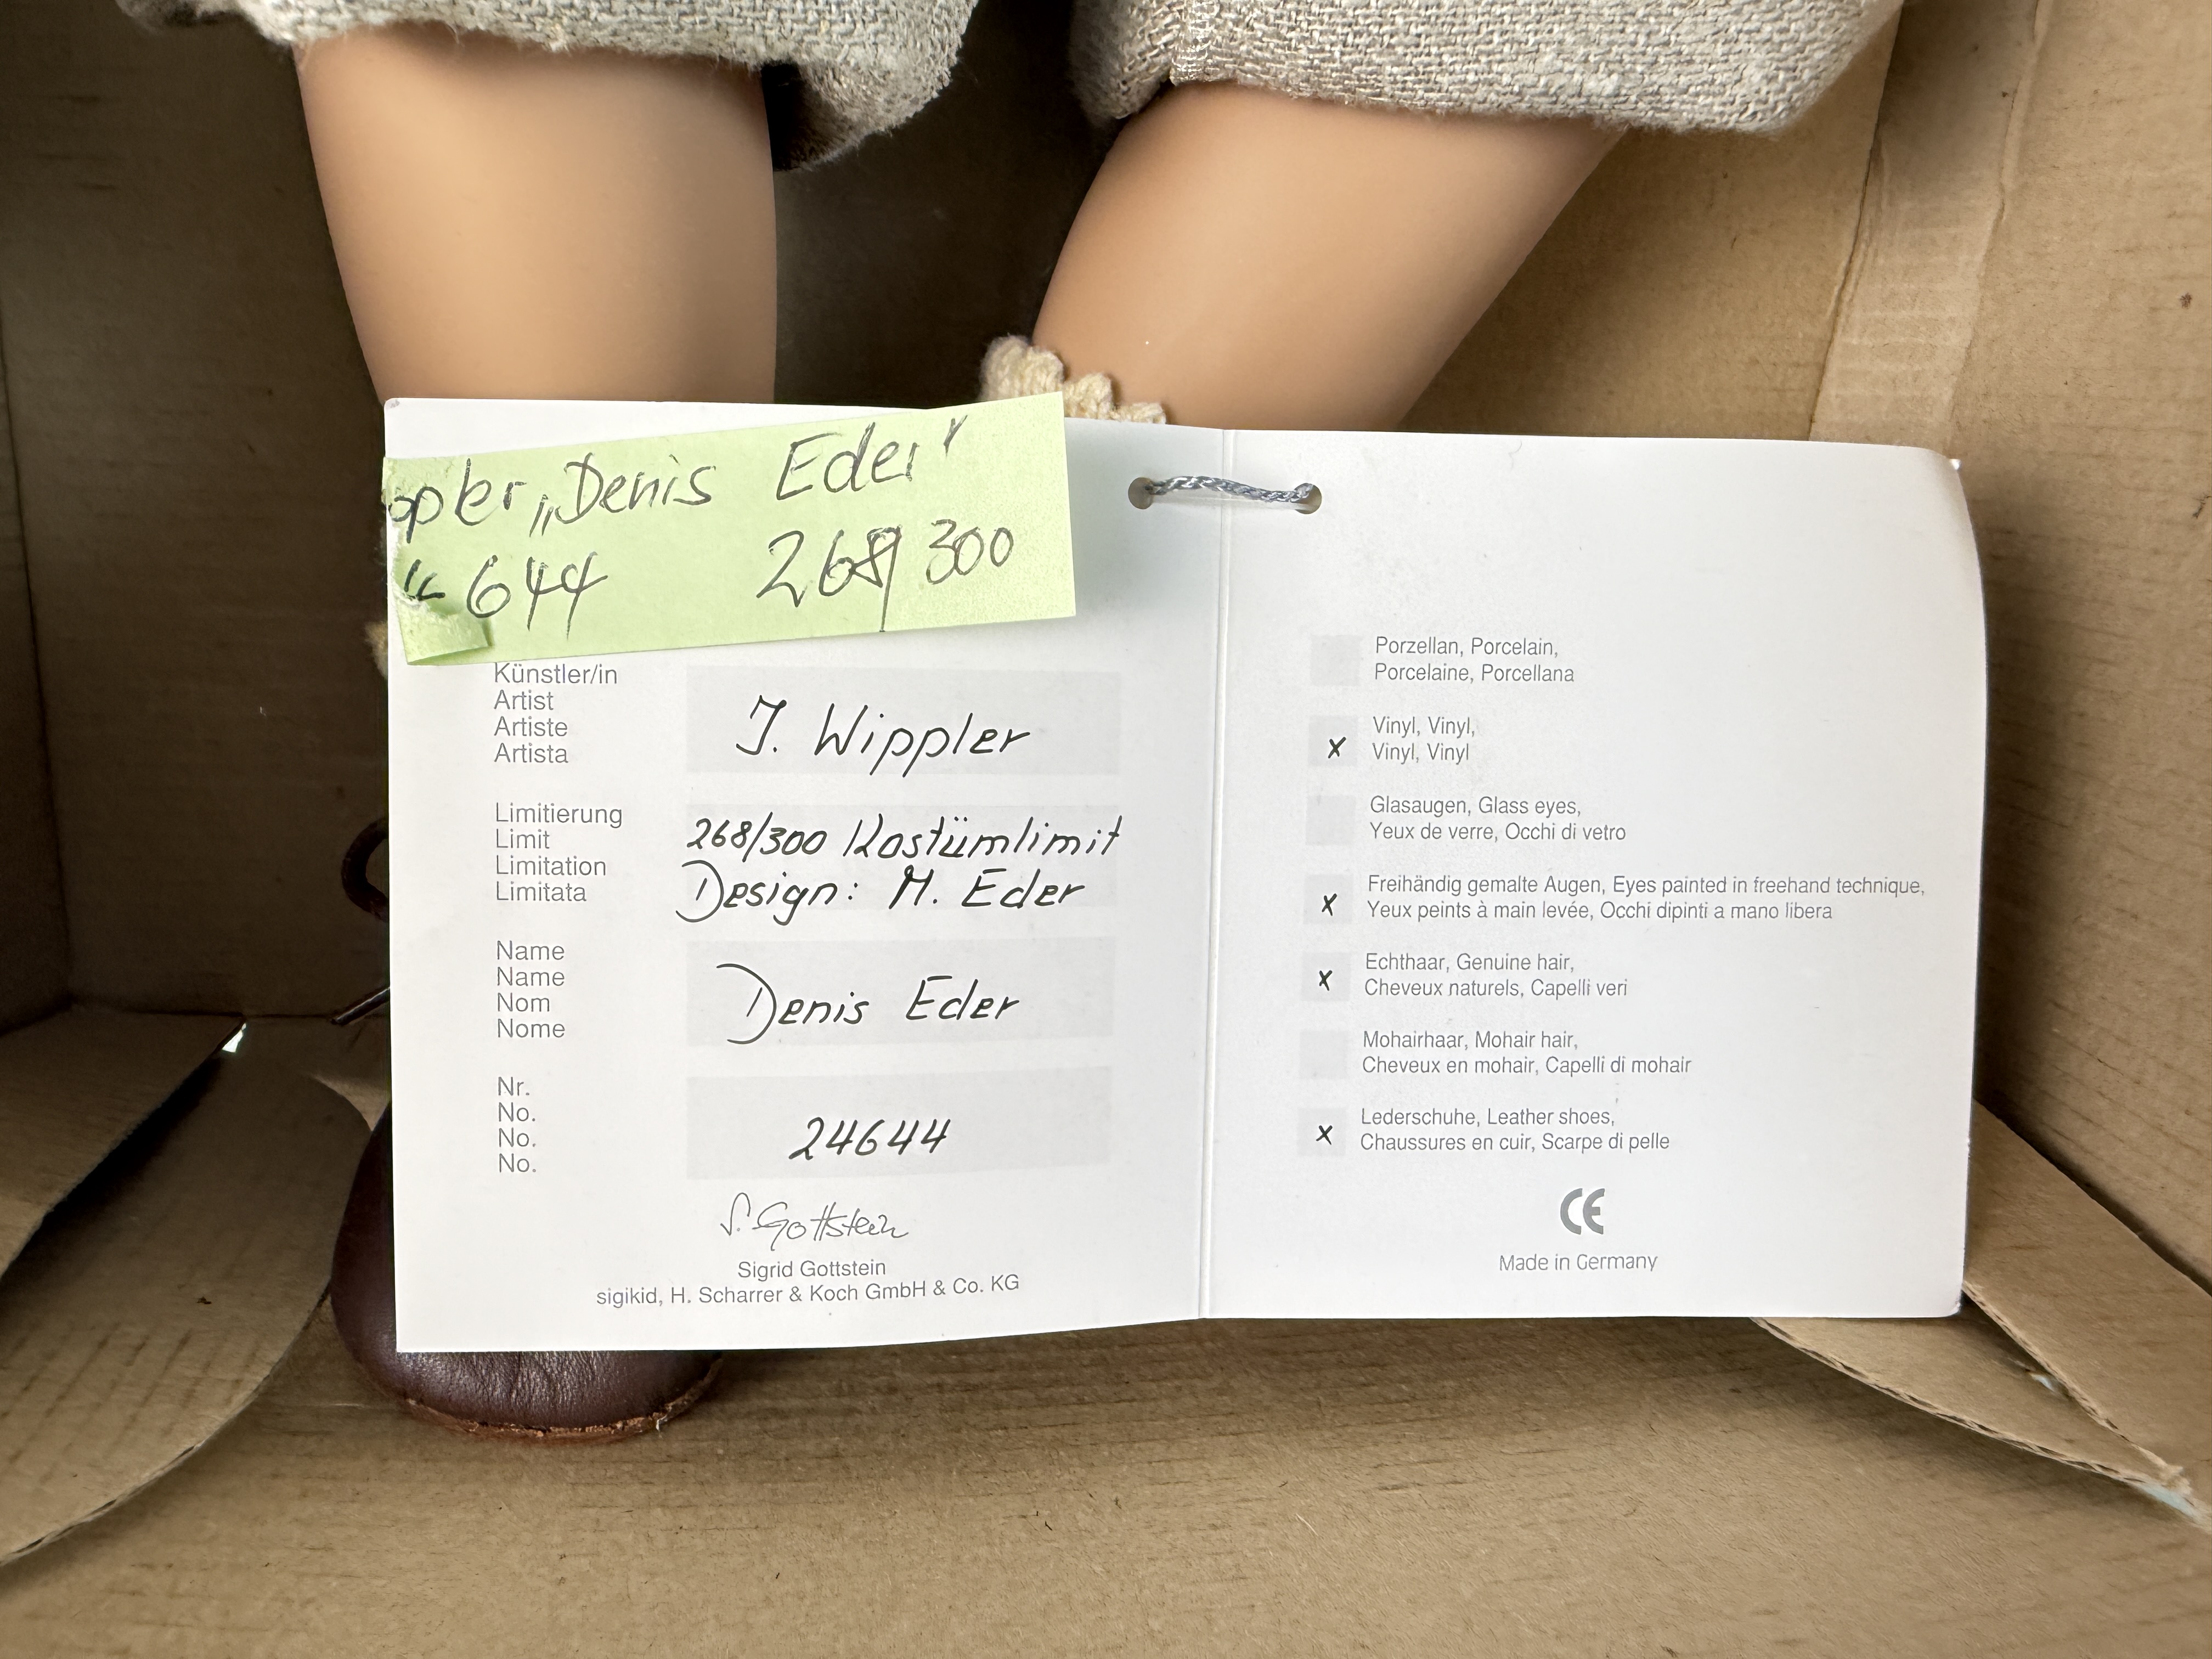 „Denis Eder"
644 268/300
Künstler/in
Artist
Artiste
Artista
J. Wippler
Limitierung
Limit
Limitation
Limitata
268/300 Kostümlimit
Design: M. Eder
Name
Name
Nom
Nome
Denis Eder
Nr.
No.
No.
No.
24644
S. Gottstein
Sigrid Gottstein
sigikid, H. Scharrer & Koch GmbH & Co. KG
Porzellan, Porcelain,
Porcelaine, Porcellana
x Vinyl, Vinyl,
Vinyl, Vinyl
Glasaugen, Glass eyes,
Yeux de verre, Occhi di vetro
x Freihändig gemalte Augen, Eyes painted in freehand technique,
Yeux peints à main levée, Occhi dipinti a mano libera
x Echthaar, Genuine hair,
Cheveux naturels, Capelli veri
Mohairhaar, Mohair hair,
Cheveux en mohair, Capelli di mohair
x Lederschuhe, Leather shoes,
Chaussures en cuir, Scarpe di pelle
CE
Made in Germany